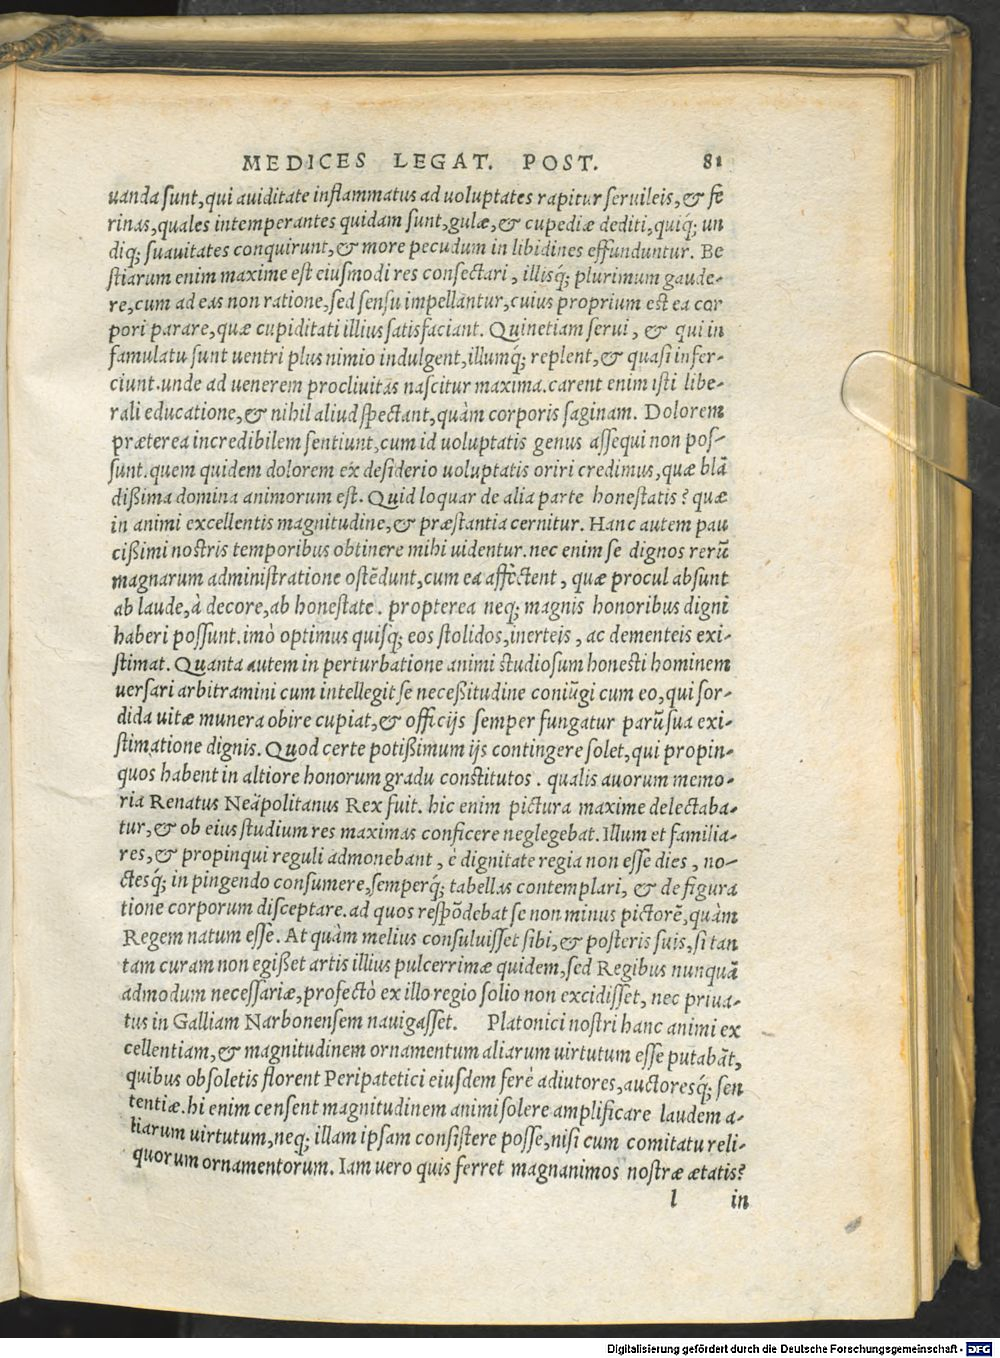 MEDICES LEGAT. POST. 81
uanda sunt, qui auiditate inflammatus ad uoluptates rapitur seruileis, & fe
rinas, quales intemperantes quidam sunt, gulæ, & cupediæ dediti, quiq́; un
diq; suauitates conquirunt, & more pecudum in libidines effunduntur. Be
stiarum enim maxime est eiusmodi res consectari, illisq́; plurimum gaude-
re, cum ad eas non ratione, sed sensu impellantur, cuius proprium est ea cor
pori parare, quæ cupiditati illius satisfaciant. Quinetiam serui, & qui in
famulatu sunt uentri plus nimio indulgent, illumq́; replent, & quasi infer-
ciunt. unde ad uenerem procliuitas nascitur maxima. carent enim isti libe-
rali educatione, & nihil aliud spectant, quàm corporis saginam. Dolorem
præterea incredibilem sentiunt, cum id uoluptatis genus assequi non pos-
sunt. quem quidem dolorem ex desiderio uoluptatis oriri credimus, quæ blã
dißima domina animorum est. Quid loquar de alia parte honestatis? quæ
in animi excellentis magnitudine, & præstantia cernitur. Hanc autem pau
cißimi nostris temporibus obtinere mihi uidentur. nec enim se dignos rerũ
magnarum administratione ostẽdunt, cum ea affectent, quæ procul absunt
ab laude, à decore, ab honestate. propterea neq; magnis honoribus digni
haberi possunt. imò optimus quisq́; eos stolidos, inerteis, ac dementeis exi-
stimat. Quanta autem in perturbatione animi studiosum honesti hominem
uersari arbitramini cum intellegit se neceßitudine coniũgi cum eo, qui sor-
dida uitæ munera obire cupiat, & officijs semper fungatur parũ sua exi-
stimatione dignis. Quod certe potißimum ijs contingere solet, qui propin-
quos habent in altiore honorum gradu constitutos. qualis auorum memo-
ria Renatus Neäpolitanus Rex fuit. hic enim pictura maxime delectaba-
tur, & ob eius studium res maximas conficere neglegebat. Illum et familia-
res, & propinqui reguli admonebant, è dignitate regia non esse dies, no-
ctesq́; in pingendo consumere, semperq́; tabellas contemplari, & de figura
tione corporum disceptare. ad quos respõdebat se non minus pictorẽ, quàm
Regem natum esse. At quàm melius consuluisset sibi, & posteris suis, si tan
tam curam non egißet artis illius pulcerrimæ quidem, sed Regibus nunquã
admodum necessariæ, profectò ex illo regio solio non excidisset, nec priua-
tus in Galliam Narbonensem nauigasset. Platonici nostri hanc animi ex
cellentiam, & magnitudinem ornamentum aliarum uirtutum esse putabãt,
quibus obsoletis florent Peripatetici eiusdem ferè adiutores, auctoresq́; sen
tentiæ. hi enim censent magnitudinem animi solere amplificare laudem a-
liarum uirtutum, neq; illam ipsam consistere posse, nisi cum comitatu reli-
quorum ornamentorum. Iam uero quis ferret magnanimos nostræ ætatis?
l in
Digitalisierung gefördert durch die Deutsche Forschungsgemeinschaft - DFG